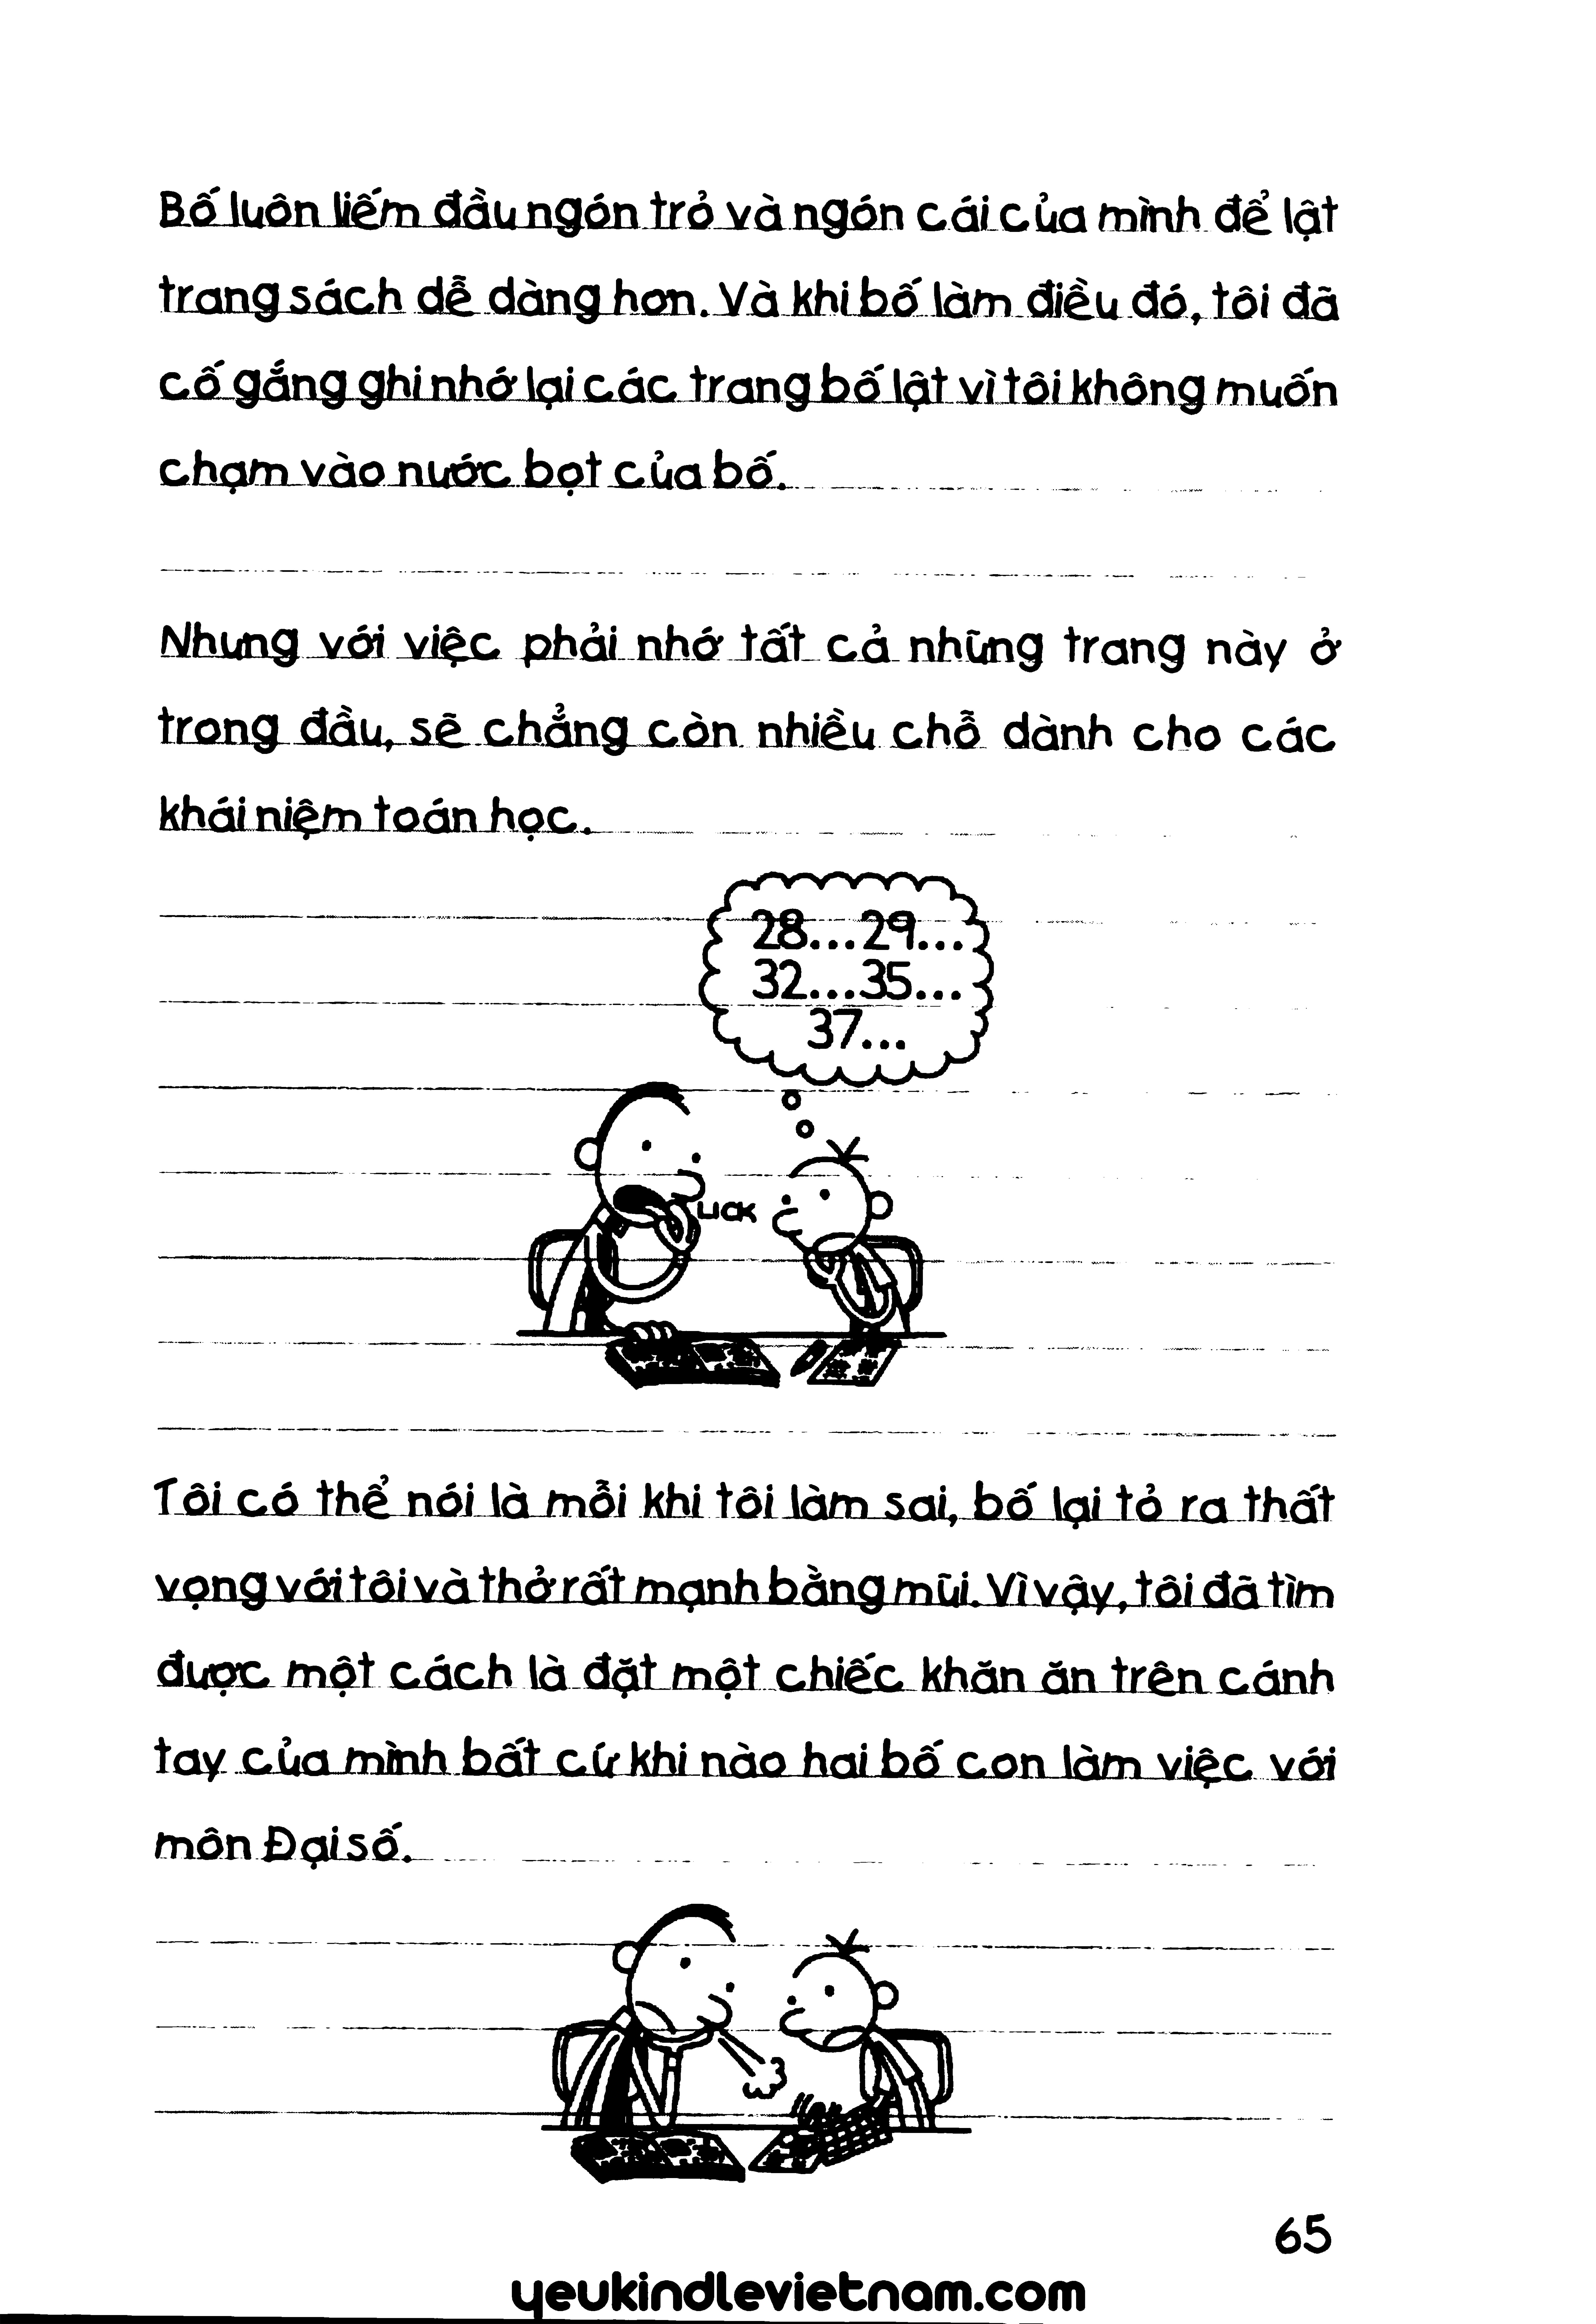 Bố luôn liếm đầu ngón trỏ và ngón cái của mình để lật
trang sách dễ dàng hơn. Và khi bố làm điều đó, tôi đã
cố gắng ghi nhớ lại các trang bố lật vì tôi không muốn
chạm vào nước bọt của bố.
Nhưng với việc phải nhớ tất cả những trang này ở
trong đầu, sẽ chẳng còn nhiều chỗ dành cho các
khái niệm toán học.
28...29...
32...35...
37...
LICK
Tôi có thể nói là mỗi khi tôi làm sai, bố lại tỏ ra thất
vọng với tôi và thở rất mạnh bằng mũi. Vì vậy, tôi đã tìm
được một cách là đặt một chiếc khăn ăn trên cánh
tay của mình bất cứ khi nào hai bố con làm việc với
môn Đại số.
65
yeukindlevietnam.com